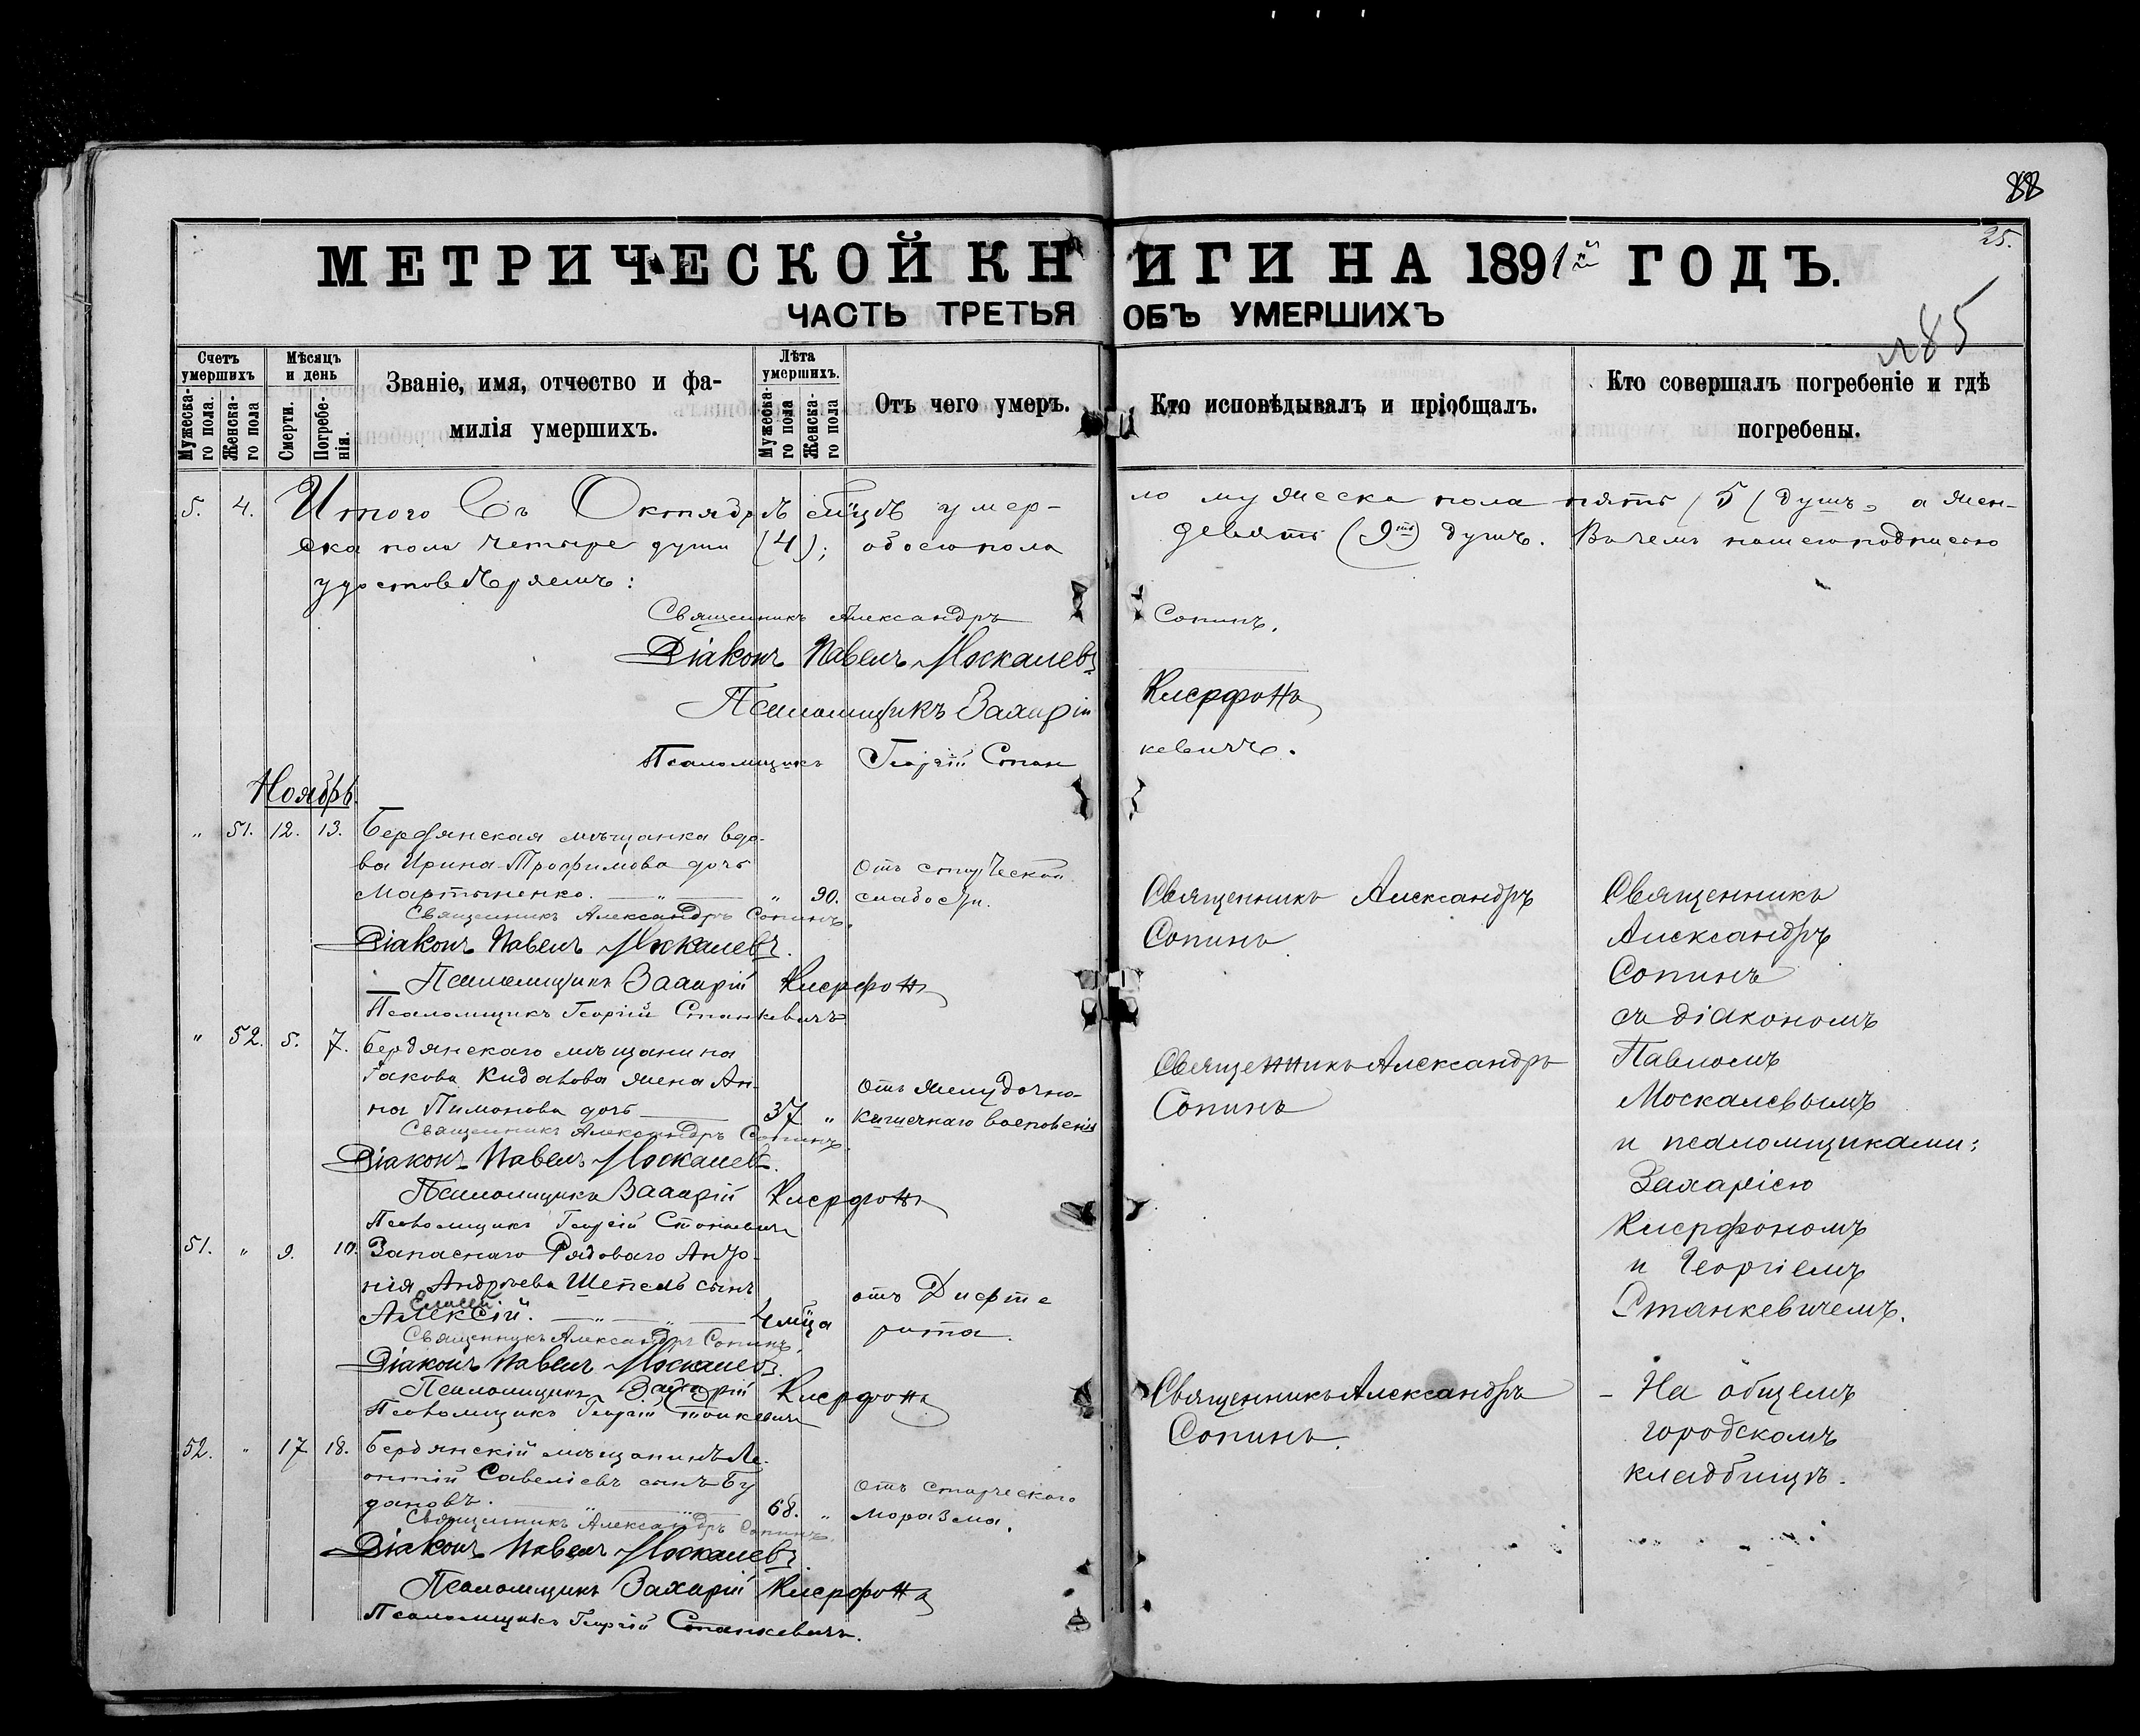 88
25.
МЕТРИЧЕСКОЙ КНИГИ НА 1891й ГОДЪ.
ЧАСТЬ ТРЕТЬЯ ОБЪ УМЕРШИХЪ
85
Счетъ умершихъ
Мужеска-го пола.
Женска-го пола
Мѣсяцъ и день
Смерти.
Погребе-нія.
Званіе, имя, отчество и фа-
милія умершихъ.
Лѣта умершихъ.
Мужеска-го пола
Женска-го пола
Отъ чего умеръ.
Кто исповѣдывалъ и пріобщалъ.
Кто совершалъ погребеніе и гдѣ
погребены.
5. 4. Итого въ Октябрѣ м̃цѣ умер-ло мужеска пола пять (5) душъ, а жен-
ска пола четыре души (4); обоего пола девять (9ть) душъ. Въ чемъ нашею подписью
удостовѣряемъ:
Священникъ Александръ Сопинъ.
Діаконъ Павелъ Москалевъ
Псаломщикъ Захарій Ксерфонъ
Псаломщикъ Георгій Станкевичъ.
Ноябрь.
" 51. 12. 13. Бердянская мѣщанка вдо-
ва Ирина Трофимова дочь
Мартыненко. " " 90.
Отъ старческой
слабости.
Священникъ Александръ
Сопинъ
Священникъ Александръ Сопинъ.
Діаконъ Павелъ Москалевъ.
Псаломщикъ Захарій Ксерфонъ
Псаломщикъ Георгій Станкевичъ
" 52. 5. 7. Бердянскаго мѣщанина
Іакова Кидалова жена Ан-
на Пимонова дочь 37 "
Отъ желудочно-
кишечнаго воспаленія
Священникъ Александръ
Сопинъ
Священникъ Александръ Сопинъ.
Діаконъ Павелъ Москалевъ.
Псаломщикъ Захарій Ксерфонъ
Псаломщикъ Георгій Станкевичъ
51. " 9. 10. Запаснаго Рядоваго Анто-
нія Андреева Шепель сынъ
Алексій. " " 4 м̃ца
отъ Дифте
рита.
Священникъ Александръ Сопинъ.
Діаконъ Павелъ Москалевъ.
Псаломщикъ Захарій Ксерфонъ
Псаломщикъ Георгій Станкевичъ
52. " 17 18. Бердянскій мѣщанинъ Ле-
онтій Савеліевъ сынъ Бу
дановъ. " " 68. "
Отъ старческаго
моразма.
Священникъ Александръ
Сопинъ.
Священникъ Александръ Сопинъ.
Діаконъ Павелъ Москалевъ.
Псаломщикъ Захарій Ксерфонъ
Псаломщикъ Георгій Станкевичъ.
Священникъ
Александръ
Сопинъ
съ діакономъ
Павломъ
Москалевымъ
и псаломщиками:
Захаріею
Ксерфономъ
и Георгіемъ
Станкевичемъ.
- На общемъ
городскомъ
кладбищѣ.